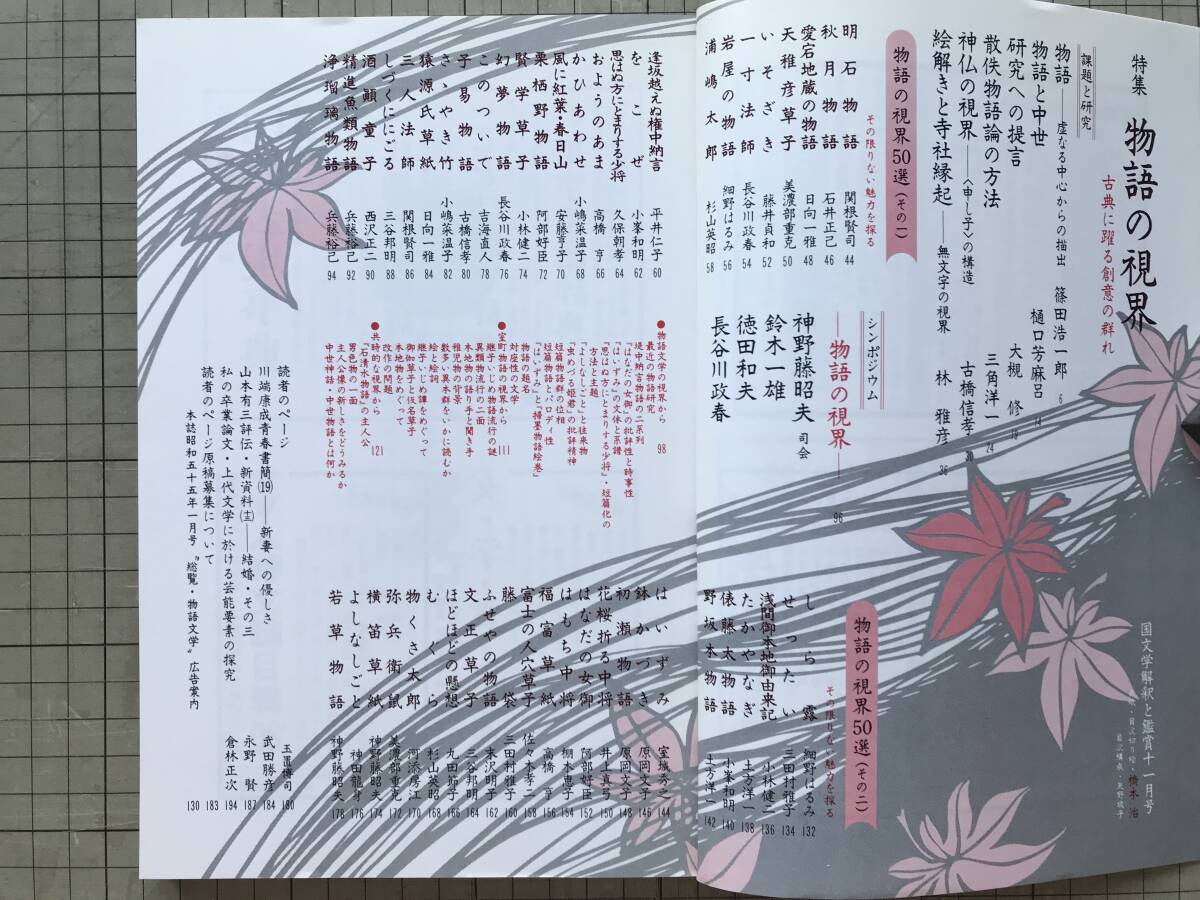 特集 物語の視界
古典に躍る創意の群れ
課題と研究
物語――虚なる中心からの描出 篠田浩一郎 6
物語と中世 樋口芳麻呂 14
研究への提言 大槻修 19
散佚物語論の方法 三角洋一 24
神仏の視界――〈申し子〉の構造 古橋信孝 30
絵解きと寺社縁起――無文字の視界 林雅彦 36
物語の視界50選(その一)
その限りない魅力を探る
明石物語 関根賢司 44
秋月物語 石井正己 46
愛宕地蔵の物語 日向一雅 48
天稚彦草子 美濃部重克 50
いそざき 藤井貞和 52
一寸法師 長谷川政春 54
岩屋の物語 細野はるみ 56
浦嶋太郎 杉山英昭 58
逢坂越えぬ権中納言 平井仁子 60
をこぜ 小峯和明 62
思はぬ方にとまりする少将 久保朝孝 64
おようのあま 高橋亨 66
かひあわせ 小嶋菜温子 68
風に紅葉・春日山 安藤亨子 70
栗栖野物語 阿部好臣 72
賢学草子 小林健二 74
幻夢物語 長谷川政春 76
このついで 吉海直人 78
子易物語 古橋信孝 80
さゝやき竹 小嶋菜温子 82
猿源氏草紙 日向一雅 84
三人法師 関根賢司 86
しづくにごる 三谷邦明 88
酒顚童子 西沢正二 90
精進魚類物語 兵藤裕己 92
浄瑠璃物語 兵藤裕己 94
シンポジウム
―物語の視界― 96
神野藤昭夫 司会
鈴木一雄
徳田和夫
長谷川政春
●物語文学の視界から 98
最近の物語研究
堤中納言物語の二系列
『はなだの女御』の批評性と時事性
『はいずみ』の文体と系譜
『思はぬ方にとまりする少将』・短篇化の
方法と主題
『よしなしごと』と往来物
『虫めづる姫君』の批評精神
短篇物語群の位相
短篇物語とパロディ性
『はいずみ』と『掃墨物語絵巻』
物語の題名
対座性の文学
●室町物語の視界から 111
継子いじめ物語流行の謎
異類物流行の二面
本地物の語り手と聞き手
稚児物の背景
数多い異本群をいかに読むか
絵と絵詞
継子いじめ譚をめぐって
御伽草子と仮名草子
本地物をめぐって
改作の問題
●共時的な視界から 121
『石清水物語』の主人公
男色物の一面
主人公像の新しさをどうみるか
中世神話・中世物語とは何か
物語の視界50選(その二)
その限りない魅力を探る
しら露 細野はるみ 132
せったい 三田村雅子 134
浅間御本地御由来記 小林健二 136
たかやなぎ 土方洋一 138
俵藤太物語 小峯和明 140
野坂本物語 土方洋一 142
はいずみ 室城秀之 144
鉢かづき 原岡文子 146
初瀬物語 原岡文子 148
花桜折る中将 井上真弓 150
はなだの女御 阿部好臣 152
はもち中将 棚木恵子 154
福富草紙 高橋亨 156
富士の人穴草子 佐々木孝二 158
藤袋 三田村雅子 160
ふせやの物語 末沢明子 162
文正草子 三谷邦明 164
ほどほどの懸想 丸田節子 166
むぐら 杉山英昭 168
物くさ太郎 河添房江 170
弥兵衛鼠 美濃部重克 172
横笛草紙 神野藤昭夫 174
よしなしごと 神田龍身 176
若草物語 神野藤昭夫 178
読者のページ 玉置博司 180
川端康成青春書簡⒆――新妻への優しさ 武田勝彦 184
山本有三評伝・新資料㈩――結婚・その三 永野賢 187
私の卒業論文・上代文学に於ける芸能要素の探究 倉林正次 194
読者のページ原稿募集について 183
本誌昭和五十五年一月号 “総覧・物語文学” 広告案内 130
国文学解釈と鑑賞十一月号